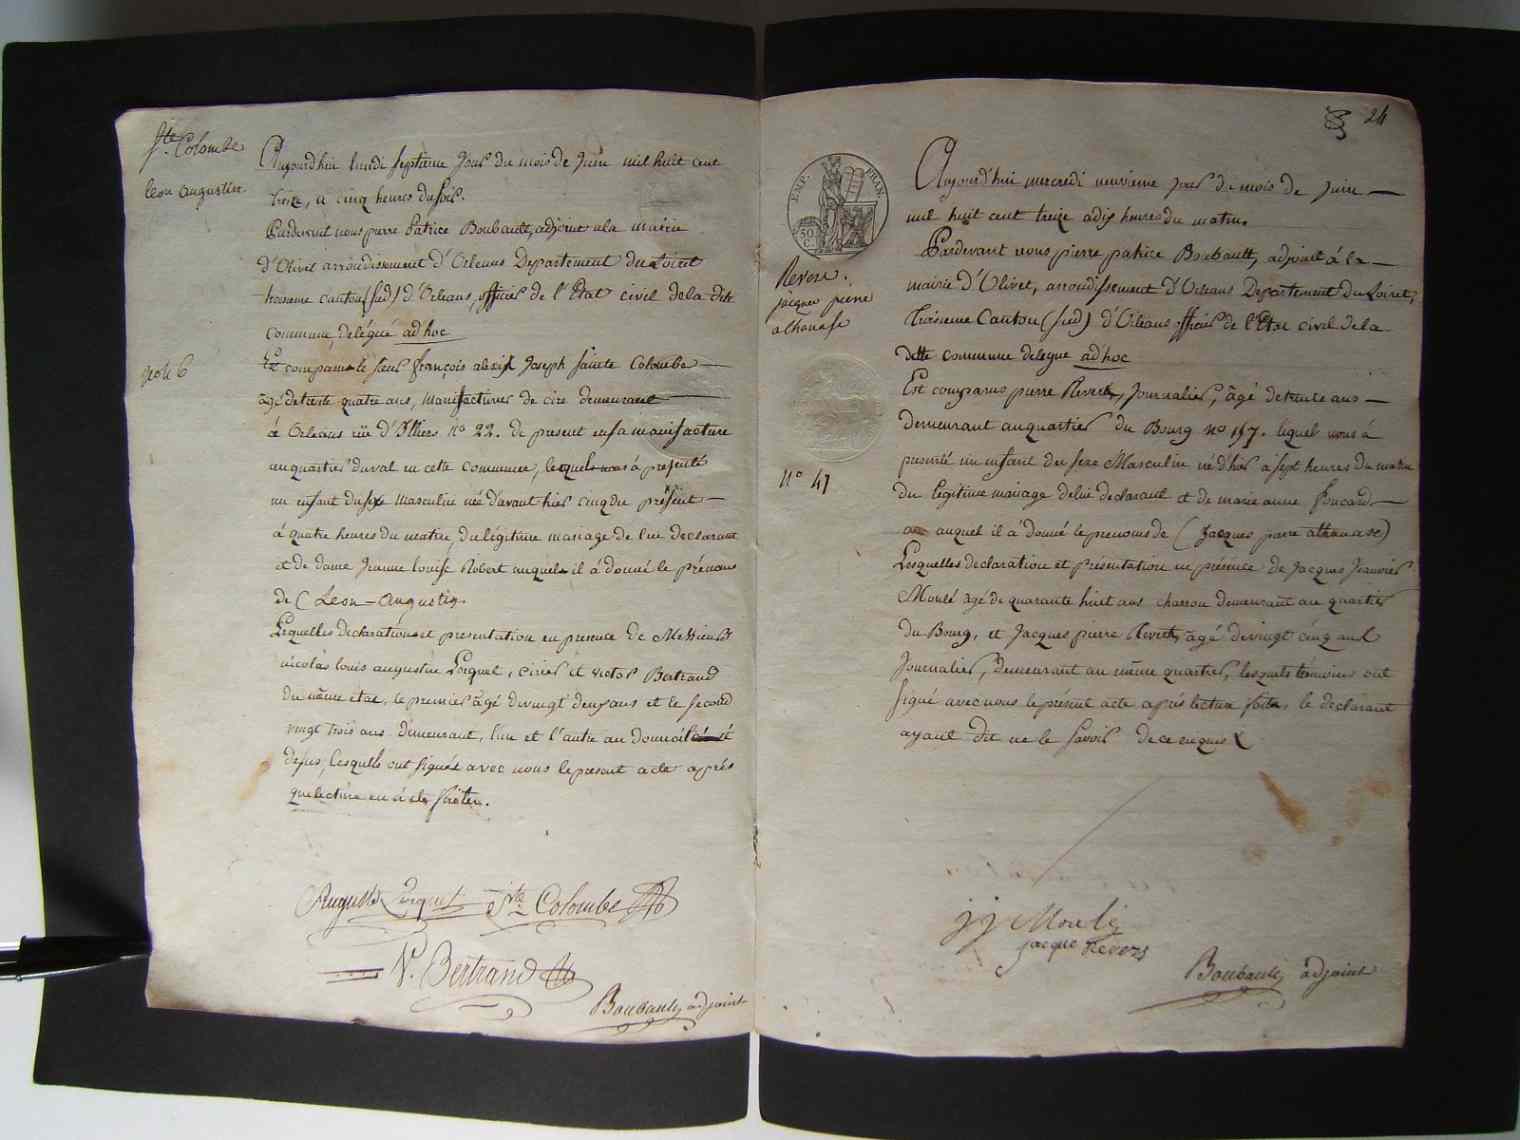 Ste Colombe
leon augustin
no 46
Aujourd'hui lundi septieme Jour du mois de Juin mil huit cent
treize, a cinq heures du soir.
Pardevant nous pierre Patrice Boubault, adjoint a la mairie
d'Olivet arrondissement d'Orleans Departement du Loiret
troisieme canton (sud) d'Orleans, officier de l'Etat civil de la dite
commune, delégué ad'hoc
Est comparu le sieur françois alexis Joseph Sainte Colombe
âgé de trente quatre ans, manufacturier de cire demeurant
à Orleans rüe d'Illiers no 22. de present en sa manufacture
au quartier du val en cette commune, lequel nous à presenté
un enfant du sexe masculin né d'avant hier cinq du présent
à quatre heures du matin, du légitime mariage de lui declarant
et de dame Jeanne louise Robert auquel il à donné le prénoms
de (Leon-Augustin.
Lequelles declarations et presentation en presence de Messieurs
nicolas louis augustin Loiquet, cirier et victor Bertrand
du même état, le premier âgé de vingt deux ans et le second
vingt trois ans demeurant, l'un et l'autre au domicile
desus, lesquels ont signés avec nous le present acte après
que lecture en à été faite.
Auguste Loiquet Ste Colombe
V. Bertrand
Boubault adjoint
24
EMP. FRAN.
50 C.
Revers.
jacques pierre
athanase
No 47
Aujourd'hui mercredi neuvieme jour du mois de juin
mil huit cent treize a dix heures du matin.
Pardevant nous pierre patrice Boubault, adjoint à la
mairie d'Olivet, arrondissement d'Orleans Departement du Loiret,
troisieme Canton (sud) d'Orleans officier de l'Etat civil de la
dette commune delegue ad'hoc
Est comparus pierre Revers, Journalier, âgé de trente ans
demeurant au quartier du Bourg no 157. lequel nous à
presenté un enfant du sexe Masculin né d'hier à sept heures du matin
du legitime mariage de lui declarant et de marie anne foucard
auquel il à donné le prenoms de (Jacques pierre athanase)
Lesquelles declaration et présentation en présence de Jacques Jeanvier
Moulé agé de quarante huit ans charron demeurant au quartier
du Bourg, et Jacques pierre Revers, âgé de vingt cinq ans
Journalier, demeurant au même quartier, lesquels temoins ont
signé avec nous le présent acte après lecture faite, le declarant
ayant dit ne le savoir de ce enquis
jj Moulé
jacque Revers
Boubault adjoint